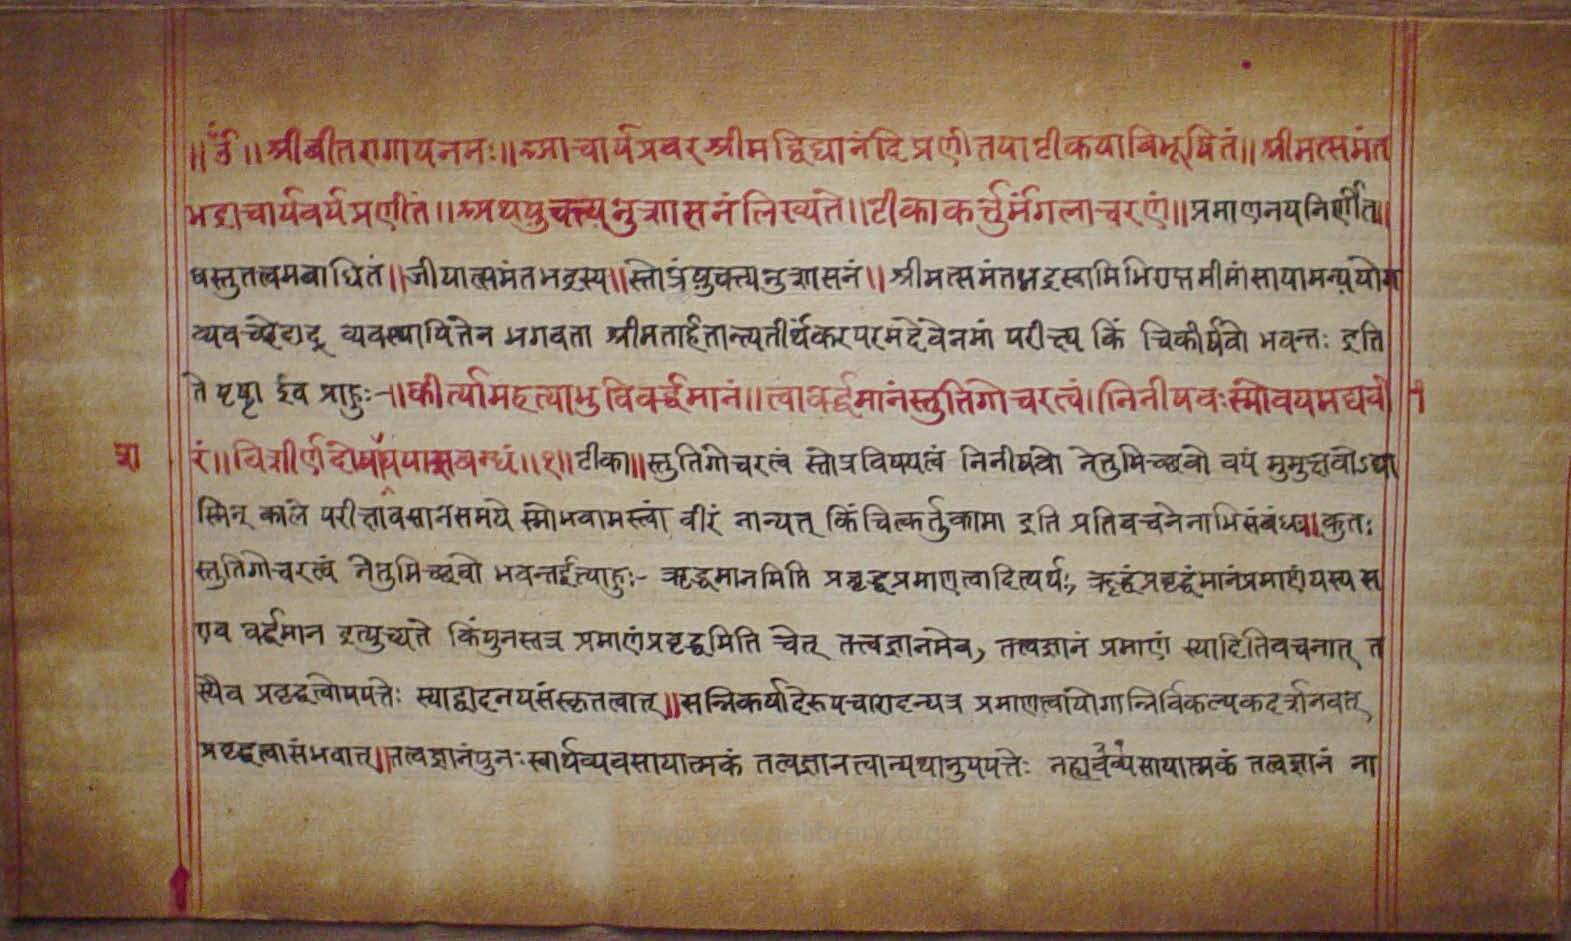 ॥ ॐ ॥ श्रीवीतरागायनमः ॥ आचार्यप्रवरश्रीमद्विद्यानंदिप्रणीतयाटीकयाविभूषितं ॥ श्रीमत्समंत
भद्राचार्यवर्यप्रणीतं ॥ अथयुक्त्यनुशासनंलिख्यते ॥ टीकाकर्त्तुर्मंगलाचरणं ॥ प्रमाणनयनिर्णीत॥
वस्तुतत्वमबाधितं ॥ जीयात्समंतभद्रस्य ॥ स्तोत्रंयुक्त्यनुशासनं ॥ श्रीमत्समंतभद्रस्वामिभिराप्तमीमांसायामन्ययोग
व्यवच्छेदाद् व्यवस्थापितेन भगवता श्रीमतार्हतान्त्यतीर्थंकरपरमदेवेनमां परीक्ष्य किं चिकीर्षवो भवन्तः इति
ते पृष्टा ईव प्राहुः-॥ कीर्त्यामहत्याभुविवर्द्धमानं ॥ त्वांवर्द्धमानंस्तुतिगोचरत्वं। निनीषवःस्मोवयमद्यवी १
शा रं ॥ विशीर्णदोषाशयपाशबन्धं ॥१॥ टीका ॥ स्तुतिगोचरत्वं स्तोत्रविषयत्वं निनीषवो नेतुमिच्छवो वयं मुमुक्षवोऽद्या
स्मिन् काले परीक्षावसानसमये स्मोभवामस्त्वां वीरं नान्यत् किंचित्कर्तुकामा इति प्रतिवचनेनाभिसंबंधः। कुतः
स्तुतिगोचरत्वं नेतुमिच्छवो भवन्तईत्याहुः- ऋद्धमानमिति प्रवृद्धप्रमाणत्वादित्यर्थः, ऋद्धंप्रवृद्धंमानंप्रमाणंयस्य स
एव वर्द्धमान इत्युच्यते किंपुनस्तत्र प्रमाणंप्रवृद्धमिति चेत् तत्त्वज्ञानमेव, तत्त्वज्ञानं प्रमाणं स्यादितिवचनात् त
स्यैव प्रवृद्धत्वोपपत्तेः स्याद्वादनयसंस्कृतत्वात् ॥ सन्निकर्षादेरूपचारादन्यत्र प्रमाणत्वायोगान्निर्विकल्पकदर्शनवत्
प्रवृद्धत्वासंभवात् ॥ तत्वज्ञानंपुनः स्वार्थव्यवसायात्मकं तत्वज्ञानत्वान्यथानुपपत्तेः नह्यर्थव्यवसायात्मकं तत्वज्ञानं ना